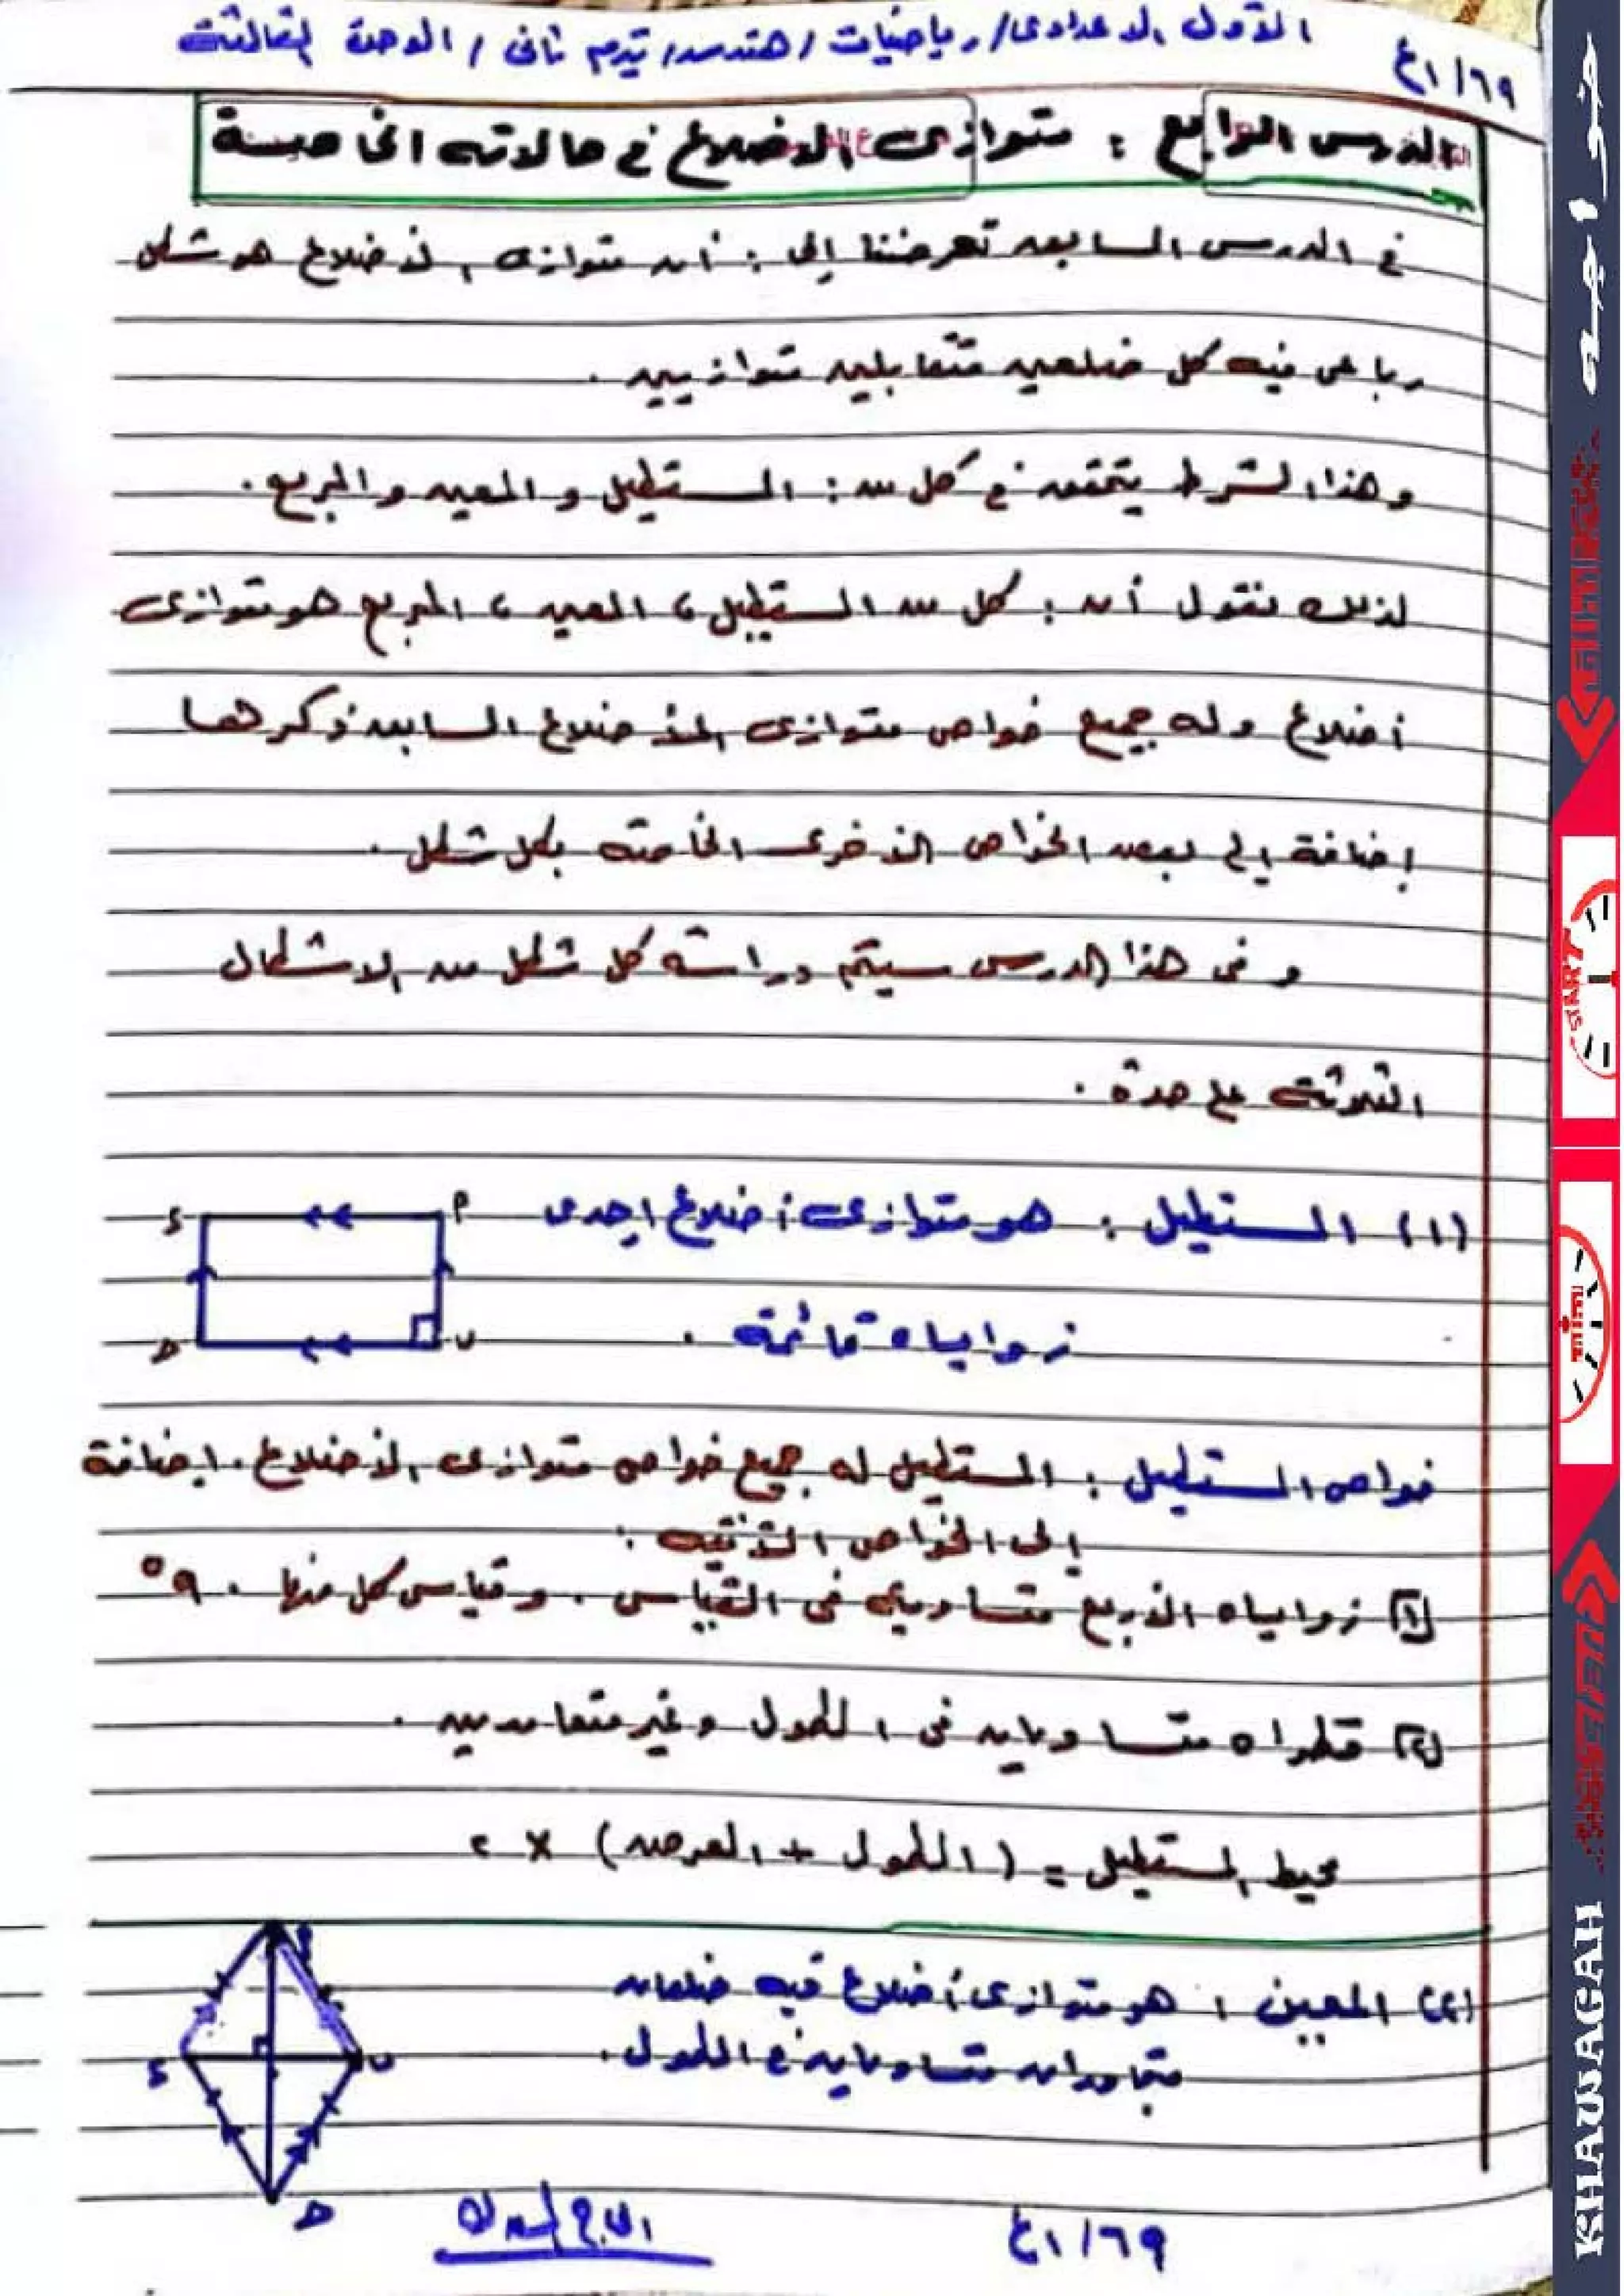 الأول الاعدادى / رياضيات / هندسه / تيرم ثانى / الوحدة الثالثة
٦٩ / ١ع
الدرس الرابع : متوازى الاضلاع فى حالاته الخاصة
فى الدرس السابق تعرضنا إلى : أن متوازى الأضلاع هو شكل
رباعى فيه كل ضلعين متقابلين متوازيين .
وهذا الشرط يتحقق فى كل من : المستطيل و المعين و المربع .
لذلك نقول أن : كل من المستطيل ، المعين ، المربع هو متوازى
أضلاع وله جميع خواص متوازى الأضلاع السابق ذكرها
إضافة إلى بعض الخواص الأخرى الخاصة بكل شكل .
و فى هذا الدرس سيتم دراسة كل شكل من الاشكال
الثلاثة على حدة .
(١) المستطيل : هو متوازى أضلاع إحدى
زواياه قائمة .
٩ ء
ب ح
خواص المستطيل : المستطيل له جميع خواص متوازى الأضلاع . إضافة
إلى الخواص الأتيه :
[١] زواياه الأربع متساويه فى القياس . وقياس كل منها ٩٠°
[٢] قطراه متساويان فى الطول وغير متعامدين .
محيط المستطيل = ( الطول + العرض ) × ٢
(٢) المعين : هو متوازى أضلاع فيه ضلعان
متجاوران متساويان فى الطول .
٩
ء ب
ح
٦٩ / ١ع
START
TIME
KHAWAGAH